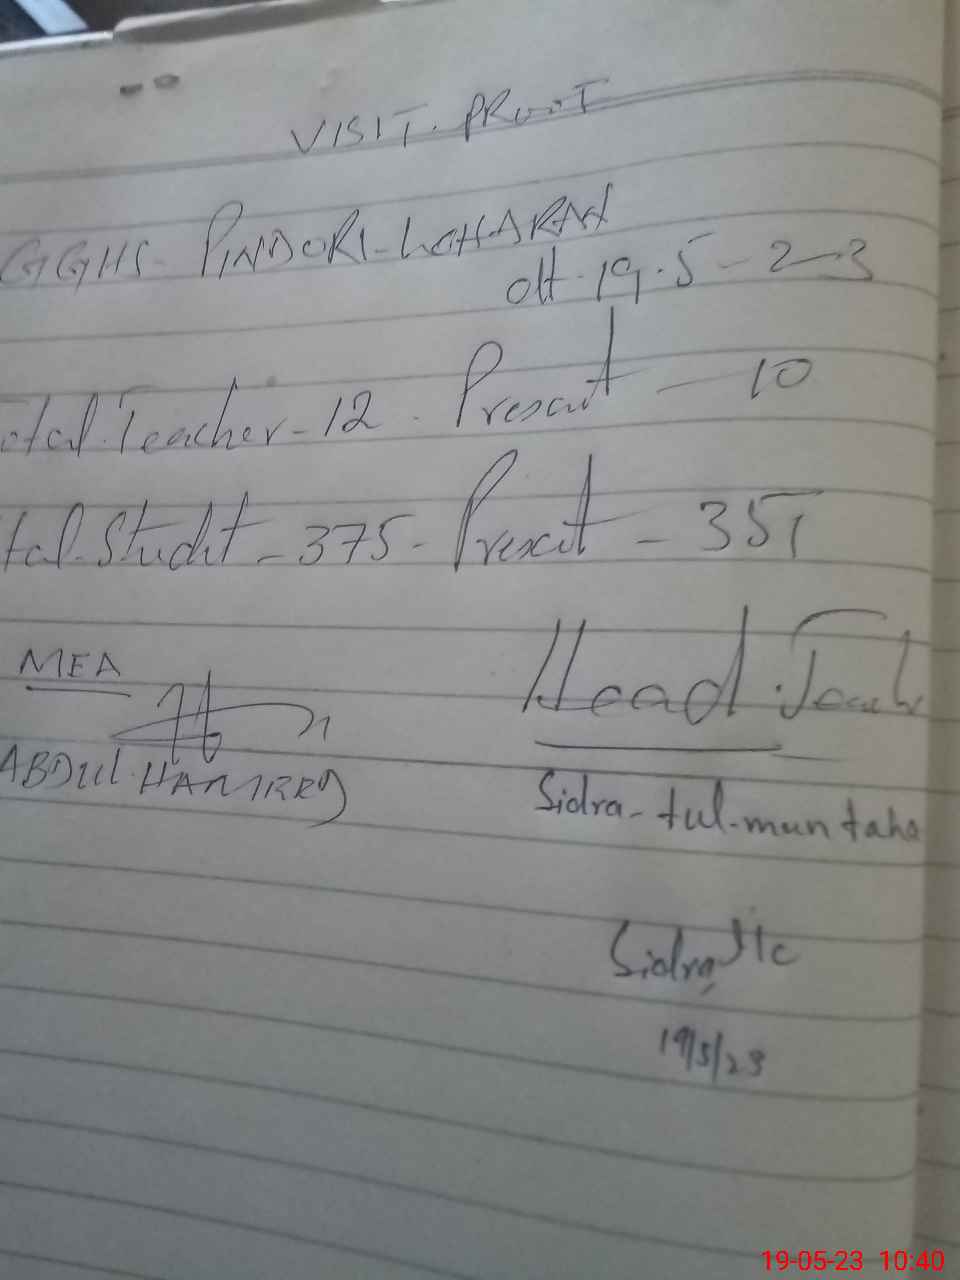 VISIT. PROOT
GGHS- PINDORI-LOHARAN
dt. 19.5-2-3
otal.Teacher-12. Present - 10
tal-Studet-375- Present - 351
MEA
Head Teach
ABDUL.HAMEED
Sidra-tul-muntaha
Sidra
19/5/23
19-05-23 10:40